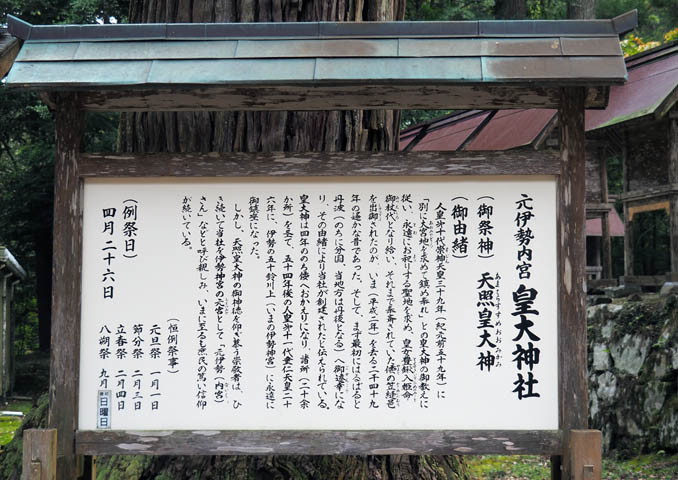 元伊勢内宮 皇大神社
(御祭神) 天照皇大神
あまてらすすめおおかみ
(御由緒)
人皇第十代崇神天皇三十九年(紀元前五十九年)に
「別に大宮地を求めて鎮め奉れ」との皇大神の御教えに
従い、永遠にお祀りする聖地を求め、皇女豊鍬入姫命
御杖代となり給い、それまで奉斎されていた倭の笠縫邑
を出御されたのが、いま(平成二年)を去る二千四十九
年の遙かな昔であった。そして、まず最初にはるばると
丹波(のちに分国、当地方は丹後となる)へ御遷幸にな
り、その由緒により当社が創建されたと伝えられている。
皇大神は四年ののち倭へおかえりになり、諸所(二十余
か所)を経て、五十四年後の人皇第十一代垂仁天皇二十
六年に、伊勢の五十鈴川上(いまの伊勢神宮)に永遠に
御鎮座になった。
しかし、天照皇大神の御神徳を仰ぎ慕う崇敬者は、ひ
き続いて当社を伊勢神宮の元宮として、「元伊勢(内宮)
さん」などと呼び親しみ、いまに至るも庶民の篤い信仰
が続いている。
(例祭日)
四月二十六日
(恒例祭事)
元旦祭 一月一日
節分祭 二月三日
立春祭 二月四日
八湖祭 九月 日曜日